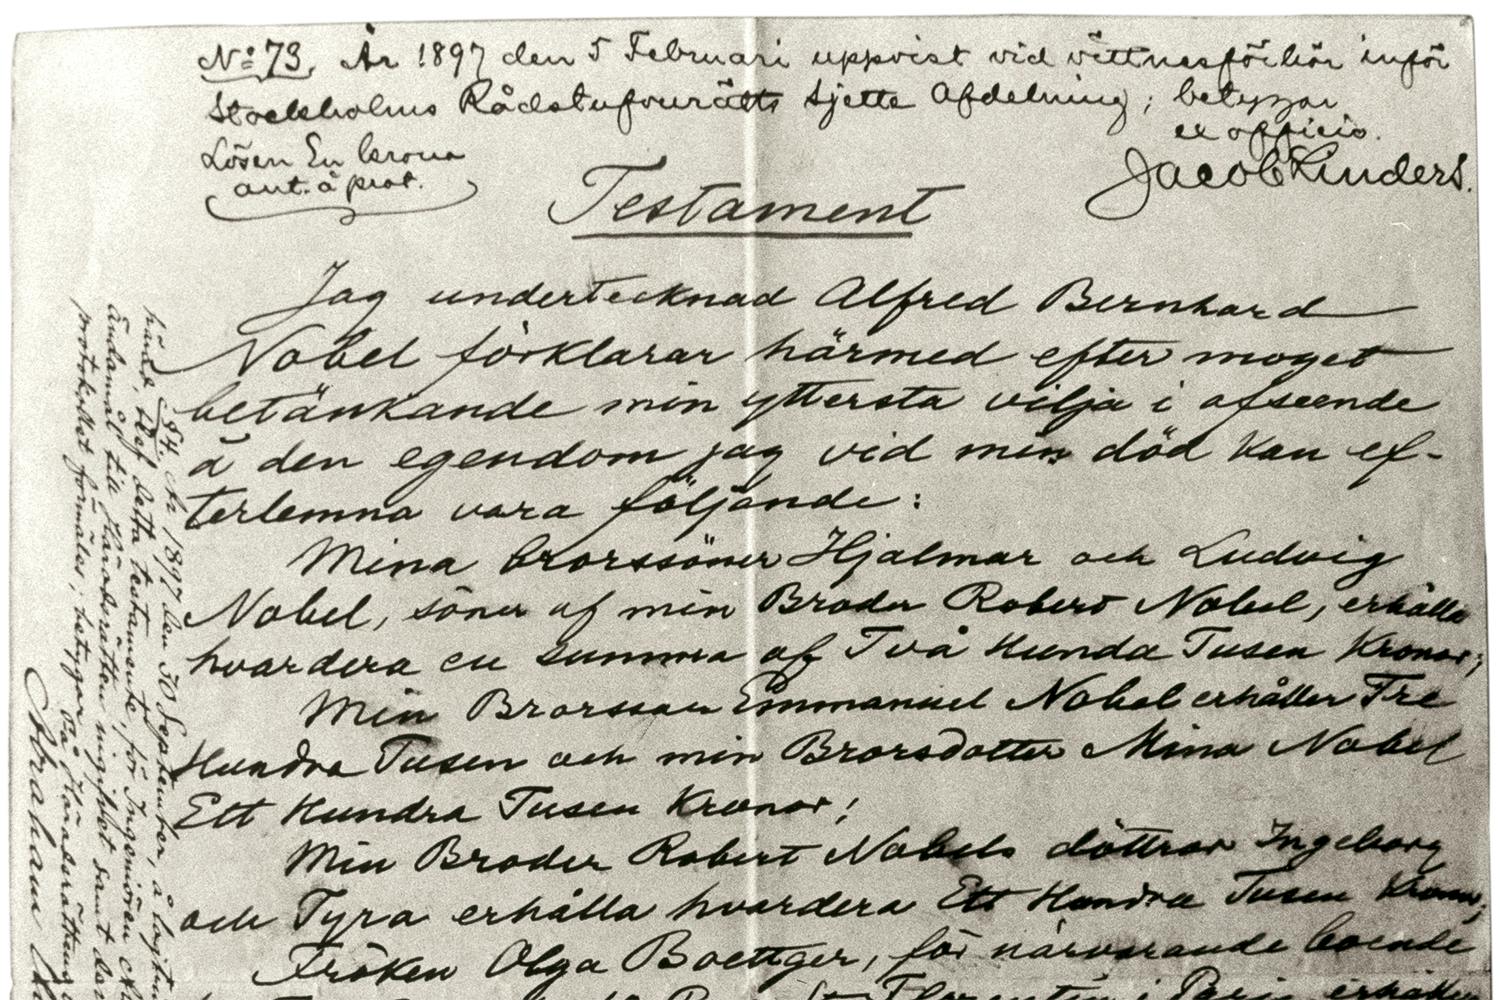 No 73. År 1897 den 5 Februari uppvist vid vittnesförhör inför
Stockholms Rådstufvurätts sjette Afdelning; betygar
ex officio.
Lösen En krona
ant. å prot.
Jacob Linders.
Testament
Jag undertecknad Alfred Bernhard
Nobel förklarar härmed efter moget
betänkande min yttersta vilja i afseende
å den egendom jag vid min död kan ef-
terlemna vara följande:
Mina brorssöner Hjalmar och Ludvig
Nobel, söner af min Broder Robert Nobel, erhålla
hvardera en summa af Två Hunda Tusen Kronor;
Min Brorsson Emmanuel Nobel erhåller Tre
Hundra Tusen och min Brorsdotter Mina Nobel
Ett Hundra Tusen Kronor;
Min Broder Robert Nobels döttrar Ingeborg
och Tyra erhålla hvardera Ett Hundra Tusen Kronor;
Fröken Olga Boettger, för närvarande boende
St Florentin i Paris erhåller
§ 4. År 1897 den 30 September, å lagtima
detta testamente, för Ingeniören
ändamål till Häradsrätten ingifvet samt
protokollet förmäler; betygar
På Häradsrättens
Abraham